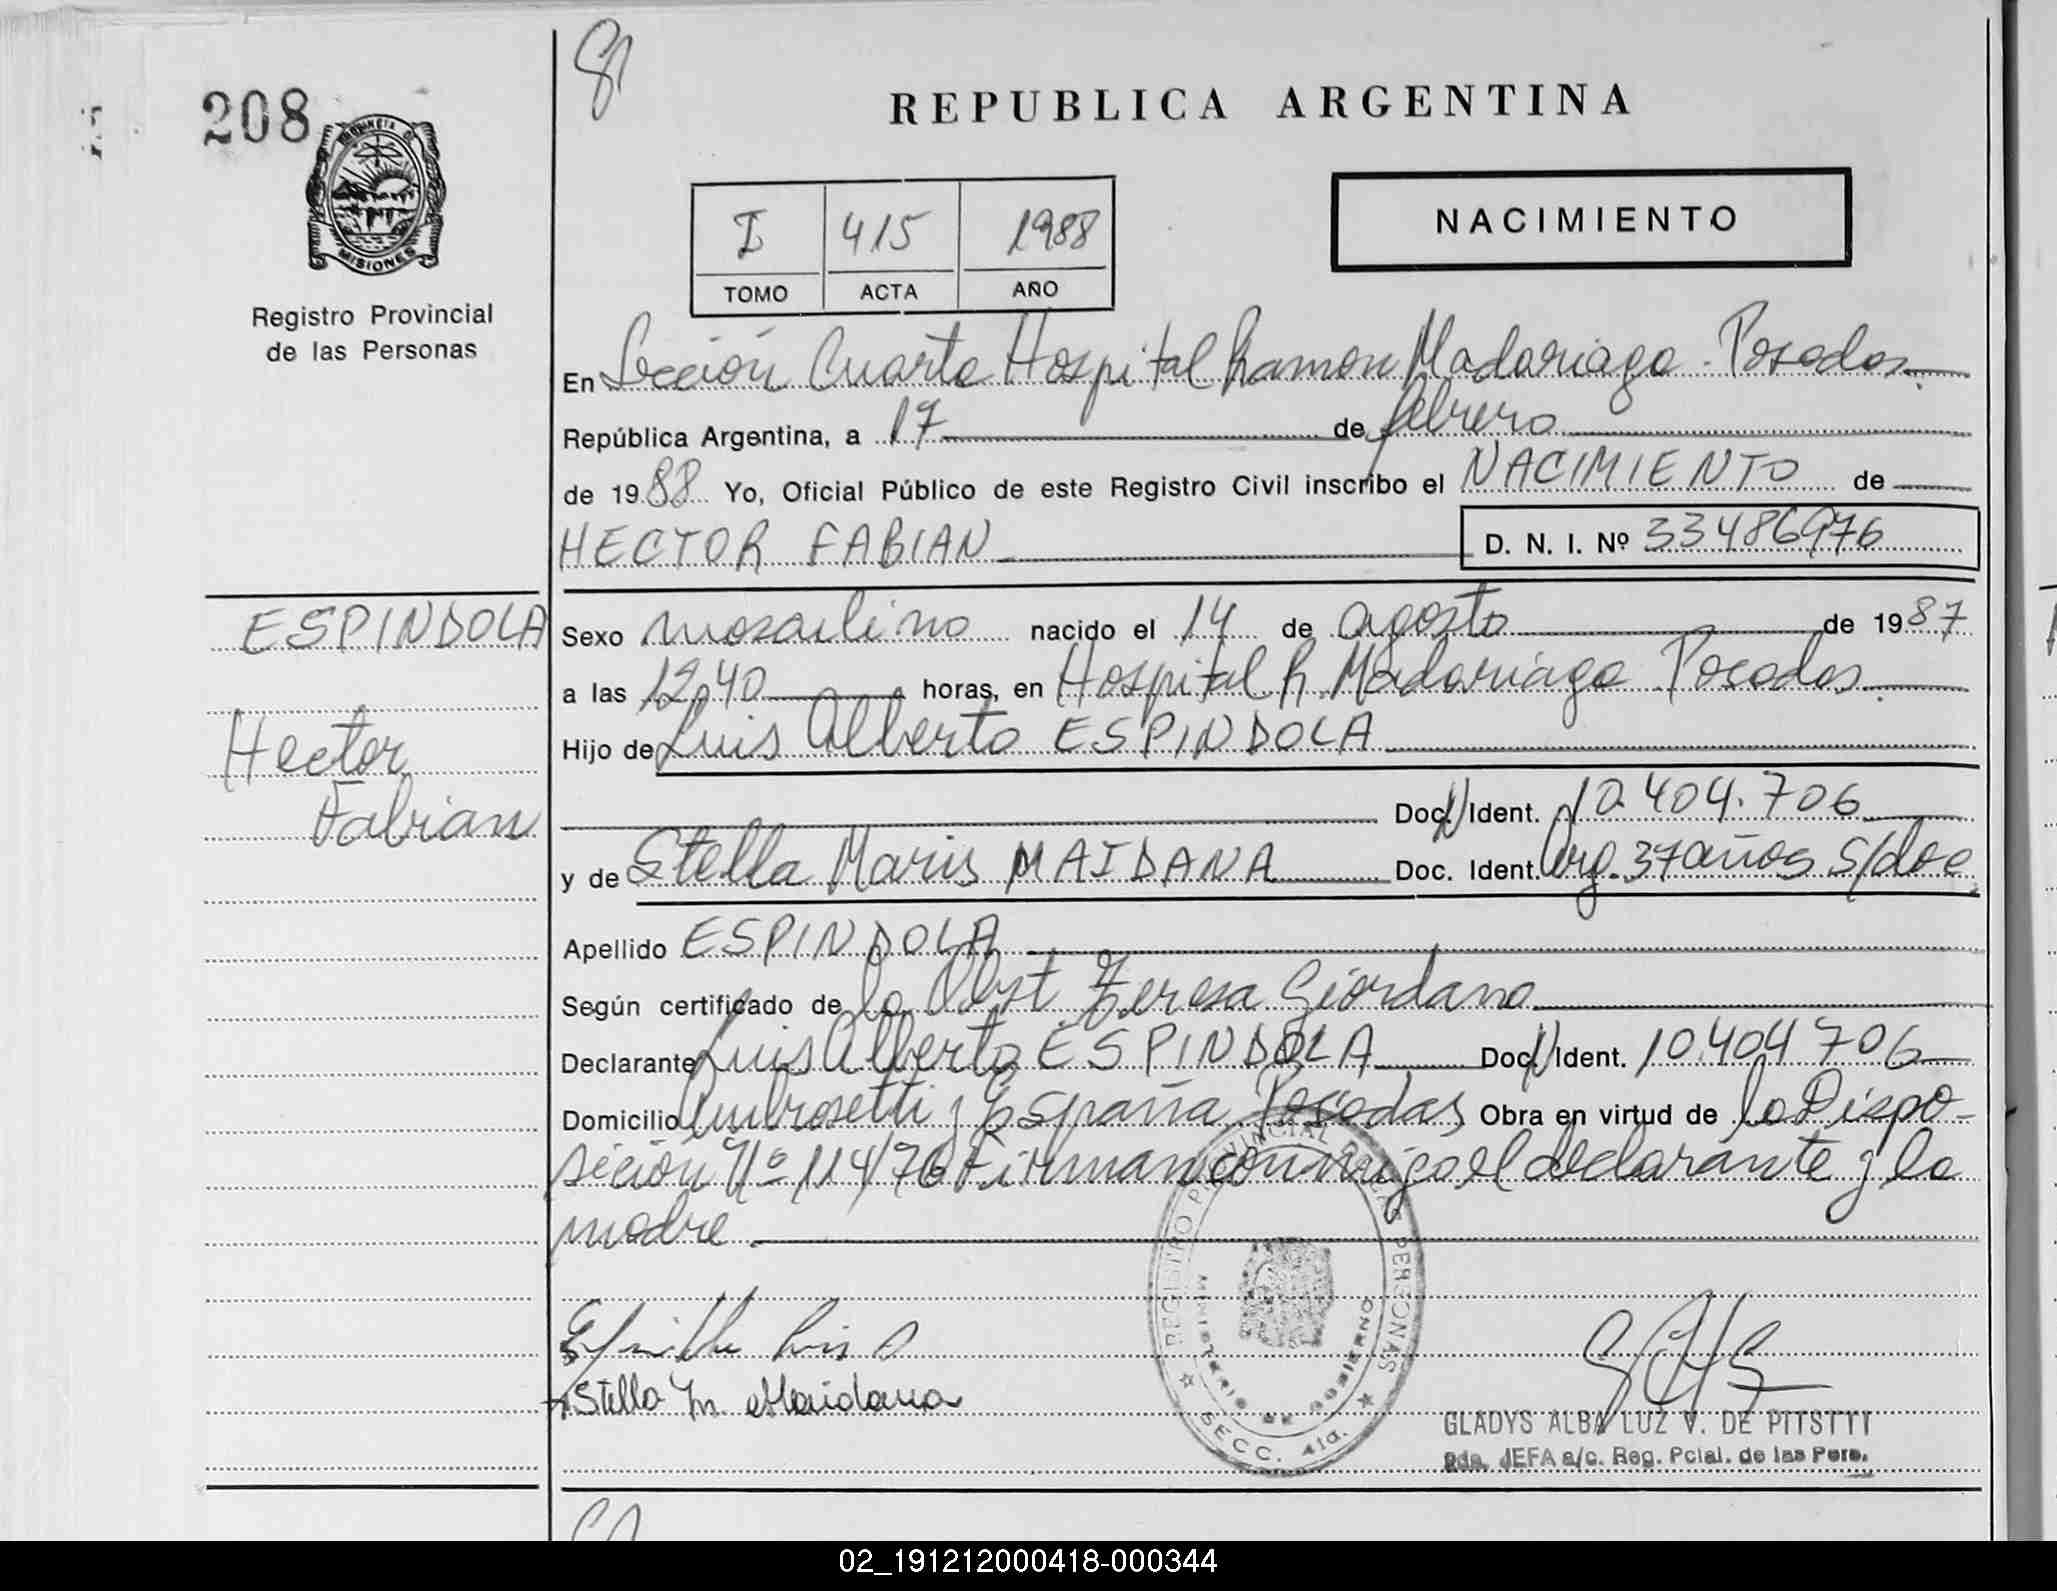 208
REPUBLICA ARGENTINA
PROVINCIA DE
MISIONES
Registro Provincial
de las Personas
I 415 1988
TOMO ACTA AÑO
NACIMIENTO
En Sección Cuarta Hospital Ramon Madariaga - Posadas.
República Argentina, a 17 de febrero
de 1988 Yo, Oficial Público de este Registro Civil inscribo el NACIMIENTO de
HECTOR FABIAN D. N. I. Nº 33486976
ESPINDOLA
Hector
Fabian
Sexo masculino nacido el 14 de agosto de 1987
a las 12,40 horas, en Hospital R. Madariaga Posadas.
Hijo de Luis Alberto ESPINDOLA
Doc. N Ident. 10.404.706
y de Stella Maris MAIDANA Doc. Ident. Arg. 37 años S/doc.
Apellido ESPINDOLA
Según certificado de la Obst. Teresa Giordano
Declarante Luis Alberto ESPINDOLA Doc. N Ident. 10.404706
Domicilio Ambrosetti y España Posadas Obra en virtud de la Dispo-
sición Nº 114/76 Firman conmigo el declarante y la
madre.
REGISTRO PROVINCIAL DE LAS PERSONAS
MINISTERIO DE GOBIERNO
SECC. 4ta.
Stella M. Maidana
GLADYS ALBA LUZ V. DE PITSTTI
2da. JEFA a/c. Reg. Pcial. de las Pers.
02_191212000418-000344